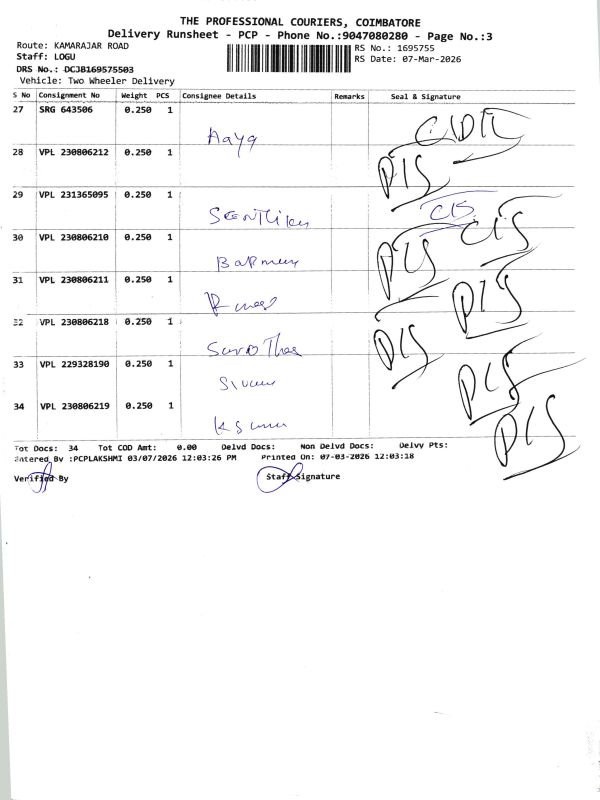 THE PROFESSIONAL COURIERS, COIMBATORE
Delivery Runsheet - PCP - Phone No.:9047080280 - Page No.:3
Route: KAMARAJAR ROAD
RS No.: 1695755
Staff: LOGU
RS Date: 07-Mar-2026
DRS No.: DCJB169575503
Vehicle: Two Wheeler Delivery
S No Consignment No Weight PCS Consignee Details Remarks Seal & Signature
27 SRG 643506 0.250 1
28 VPL 230806212 0.250 1
29 VPL 231365095 0.250 1
30 VPL 230806210 0.250 1
31 VPL 230806211 0.250 1
32 VPL 230806218 0.250 1
33 VPL 229328190 0.250 1
34 VPL 230806219 0.250 1
Tot Docs: 34 Tot COD Amt: 0.00 Delvd Docs: Non Delvd Docs: Delvy Pts:
Entered By :PCPLAKSHMI 03/07/2026 12:03:26 PM Printed On: 07-03-2026 12:03:18
Verified By Staff Signature